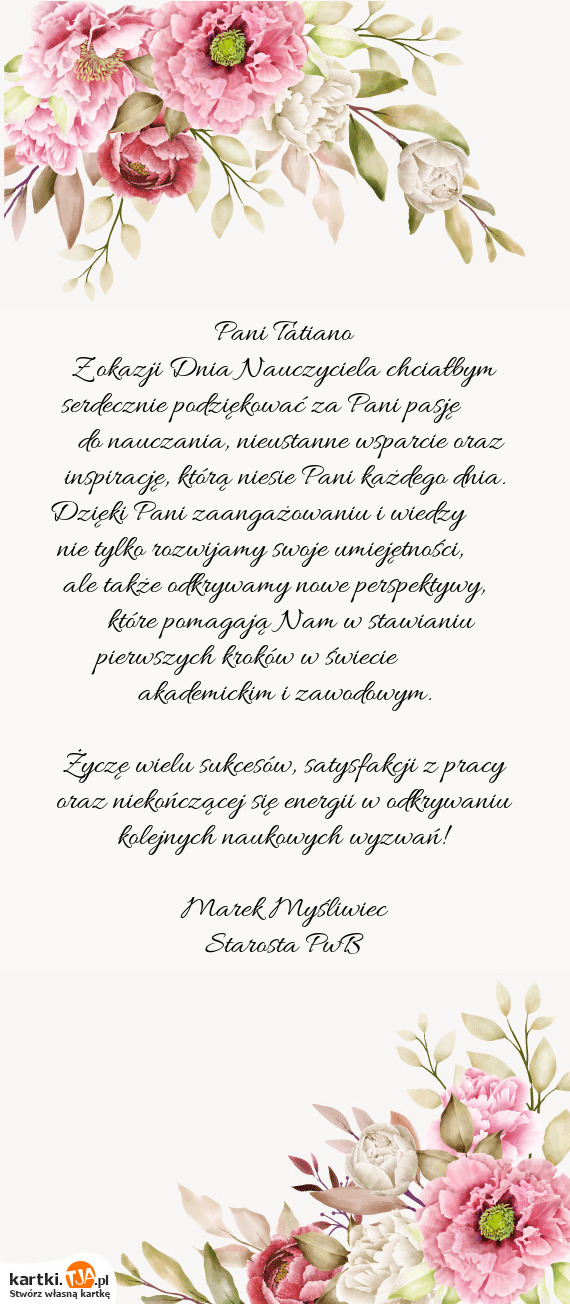 Pani Tatiano
Z okazji Dnia Nauczyciela chciałbym
serdecznie podziękować za Pani pasję
do nauczania, nieustanne wsparcie oraz
inspirację, którą niesie Pani każdego dnia.
Dzięki Pani zaangażowaniu i wiedzy
nie tylko rozwijamy swoje umiejętności,
ale także odkrywamy nowe perspektywy,
które pomagają Nam w stawianiu
pierwszych kroków w świecie
akademickim i zawodowym.
Życzę wielu sukcesów, satysfakcji z pracy
oraz niekończącej się energii w odkrywaniu
kolejnych naukowych wyzwań!
Marek Myśliwiec
Starosta PwB
kartki.TJA.pl
Stwórz własną kartkę